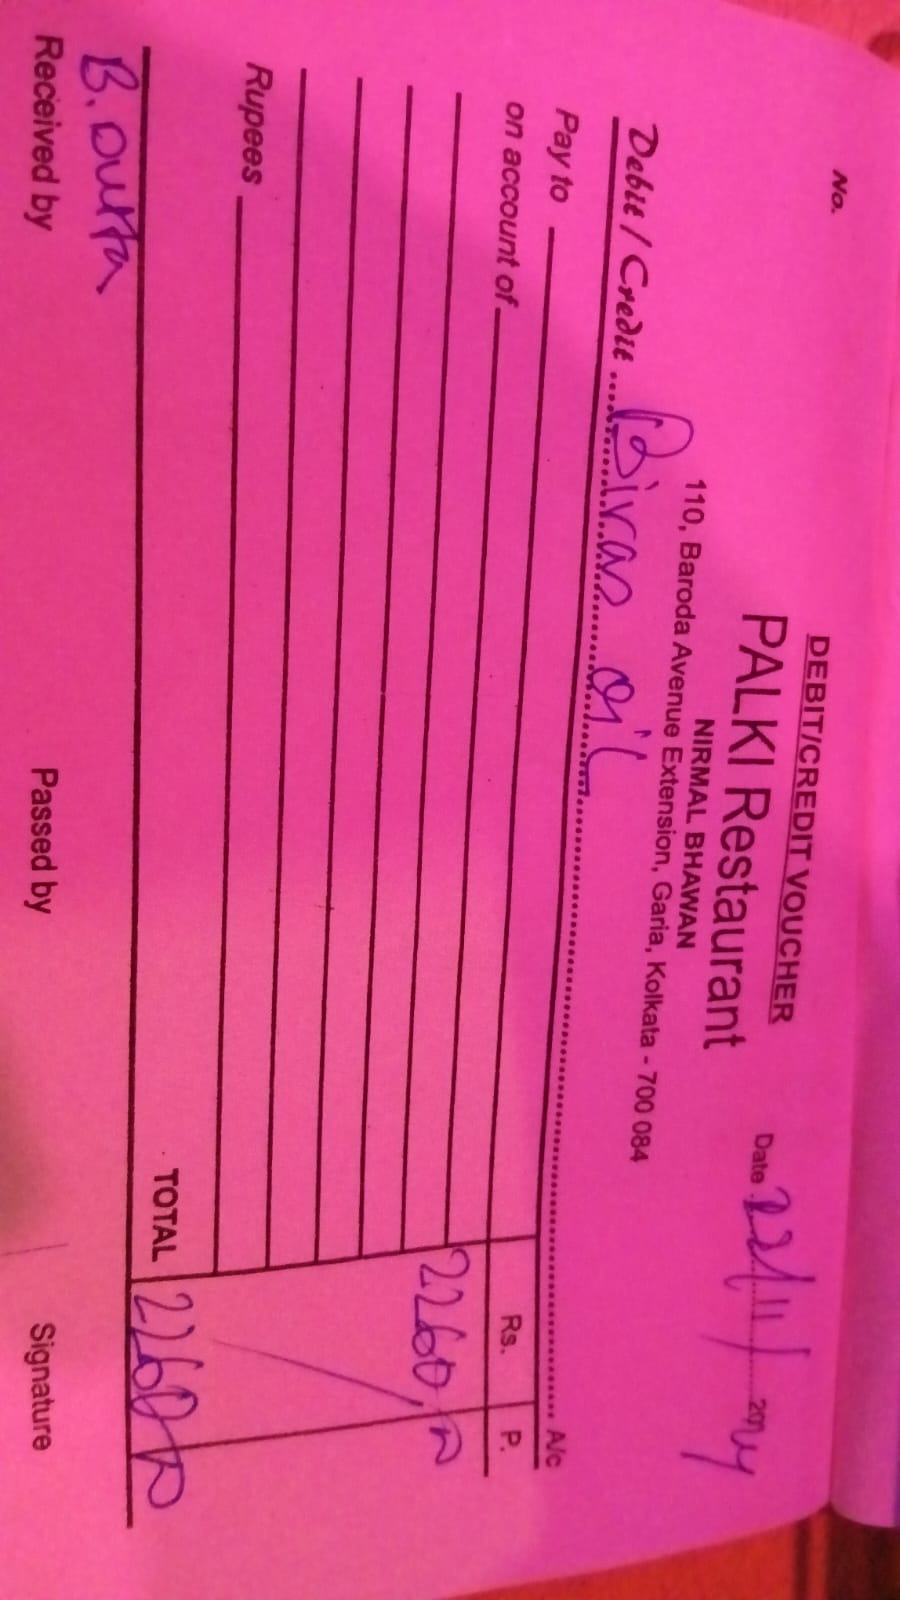 No.
DEBIT/CREDIT VOUCHER
PALKI Restaurant
NIRMAL BHAWAN
110, Baroda Avenue Extension, Garia, Kolkata - 700 084
Date 22/11/
Debit / Credit Bivas oil A/c
Pay to
on account of Rs. P.
2260
Rupees
TOTAL 2260
B. Dutta
Received by Passed by Signature